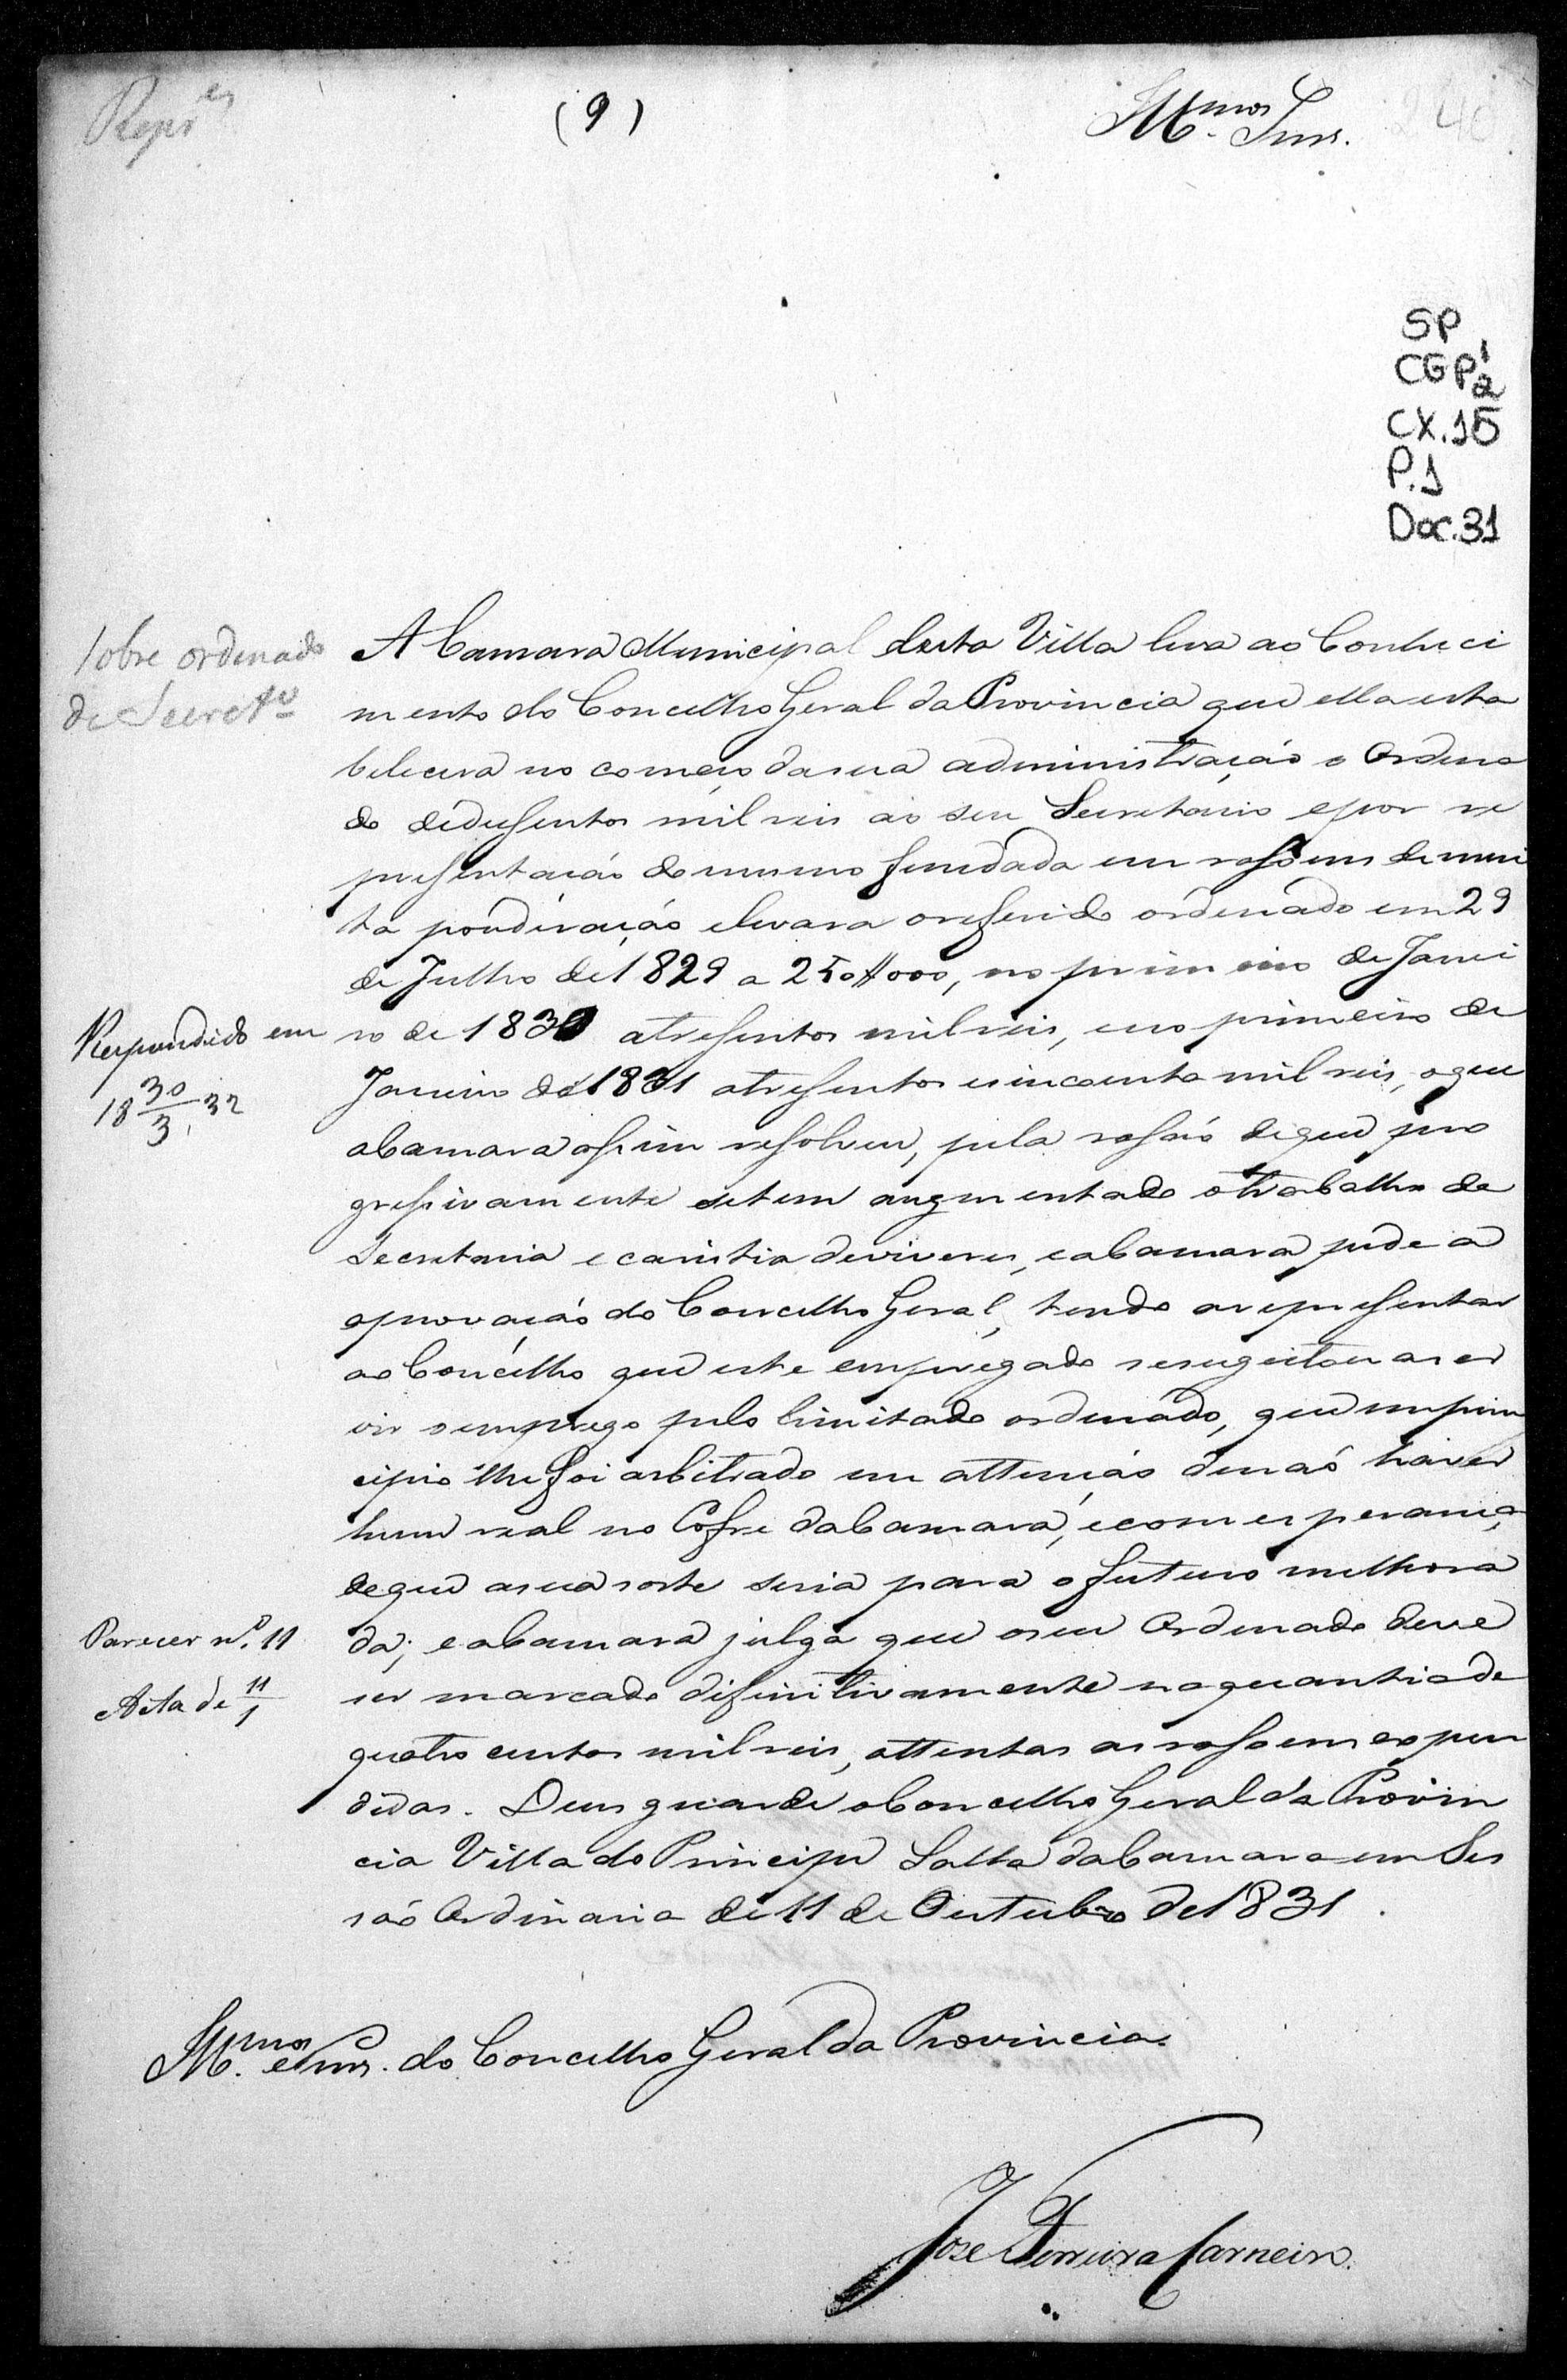 Repr.es
(9)
Illmos. Snrs.
240
SP
CGP 1
2
CX.15
P.1
Doc.31
Sobre ordenado
de Secretro
A Camara Municipal desta Villa leva ao Conheci
mento do Concelho Geral da Provincia que ella esta
belecera no começo da sua administração o Ordena
do de dusentos mil reis ao seu Secretario e por re
presentação do mesmo fundada em rasoens de mui
ta pondiração elevara o referido ordenado em 29
de Julho de 1829 a 250#000, no primeiro de Janei
ro de 1830 a tresentos mil reis, e no primeiro de
Janeiro de 1831 a tresentos e sincoenta mil reis, o que
a Camara assim resolveu, pela rasão de que pro
gressivamente se tem augmentado o trabalho da
Secretaria e caristia de viveres, e a Camara pede a
aprovação do Concelho Geral, tendo a representar
ao Concelho que este empregado se sugeitou a ser
vir o emprego pelo limitado ordenado, que em prin
cipio lhe foi arbitrado em attenção de não haver
hum real no Cofre da Camara, e com esperança,
de que a sua sorte seria para o futuro melhora
da; e a Camara julga que o seu Ordenado deve
ser marcado difinitivamente na quantia de
quatro centos mil reis, attentas as rasoens expen
didas. Deus guarde o Concelho Geral da Provin
cia Villa do Principe Salla da Camara em Ses
são Ordinaria de 11 de Outubro de 1831.
Respondido em
18 30/3 32
Parecer nº. 11
Acta de 11/1
Illmos. e Snrs. do Concelho Geral da Provincia.
Jose Ferreira Carneiro.